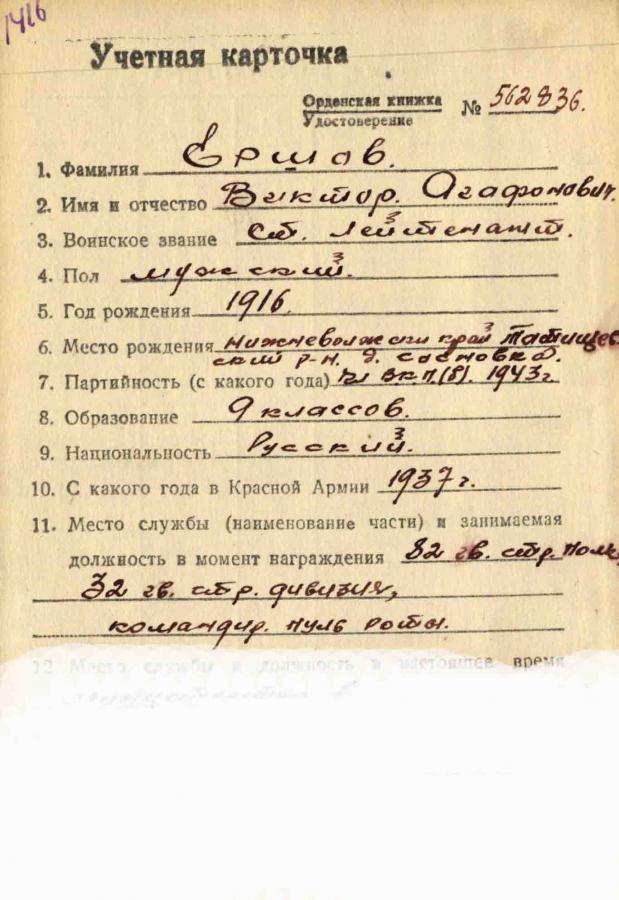 1416
Учетная карточка
Орденская книжка
Удостоверение
№ 562836.
1. Фамилия Ершов.
2. Имя и отчество Виктор. Агафонович.
3. Воинское звание Ст. Лейтенант.
4. Пол мужский.
5. Год рождения 1916.
6. Место рождения нижневолжски край Татищев
ский р-н. д. Сосновка.
7. Партийность (с какого года) ВКП(б). 1943 г
8. Образование 9 классов.
9. Национальность Русский.
10. С какого года в Красной Армии 1937 г.
11. Место службы (наименование части) и занимаемая
должность в момент награждения 82 гв. стр. полк,
32 гв. стр. дивизия,
командир. пуль роты.
12. Место службы и должность в настоящее время